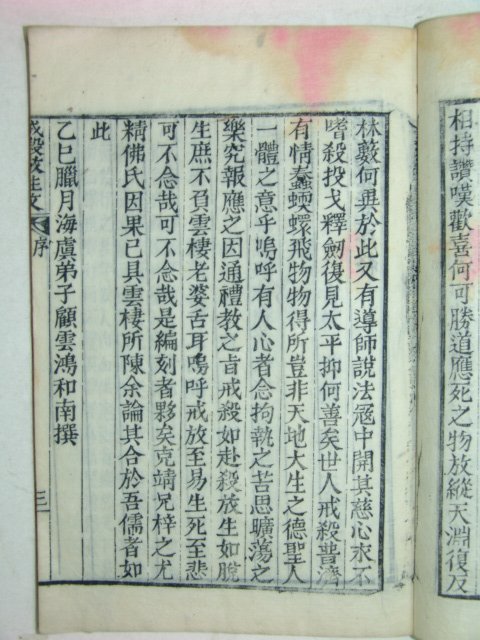 相持讚嘆歡喜何可勝道應死之物放縱天淵復反
林藪何異於此又有導師說法寇中開其慈心求不
嗜殺投戈釋劍復見太平抑何善矣世人戒殺普濟
有情蠢蝡蠉飛物物得所豈非天地大生之德聖人
一體之意乎嗚呼有人心者念拘執之苦思曠蕩之
樂究報應之因通禮教之旨戒殺如赴殺放生如脫
生庶不負雲棲老婆舌耳嗚呼戒放至易生死至悲
可不念哉可不念哉是編刻者夥矣克靖兄梓之尤
精佛氏因果已具雲棲所陳余論其合於吾儒者如
此
乙巳臘月海虞弟子顧雲鴻和南撰
戒殺放生文 序
三